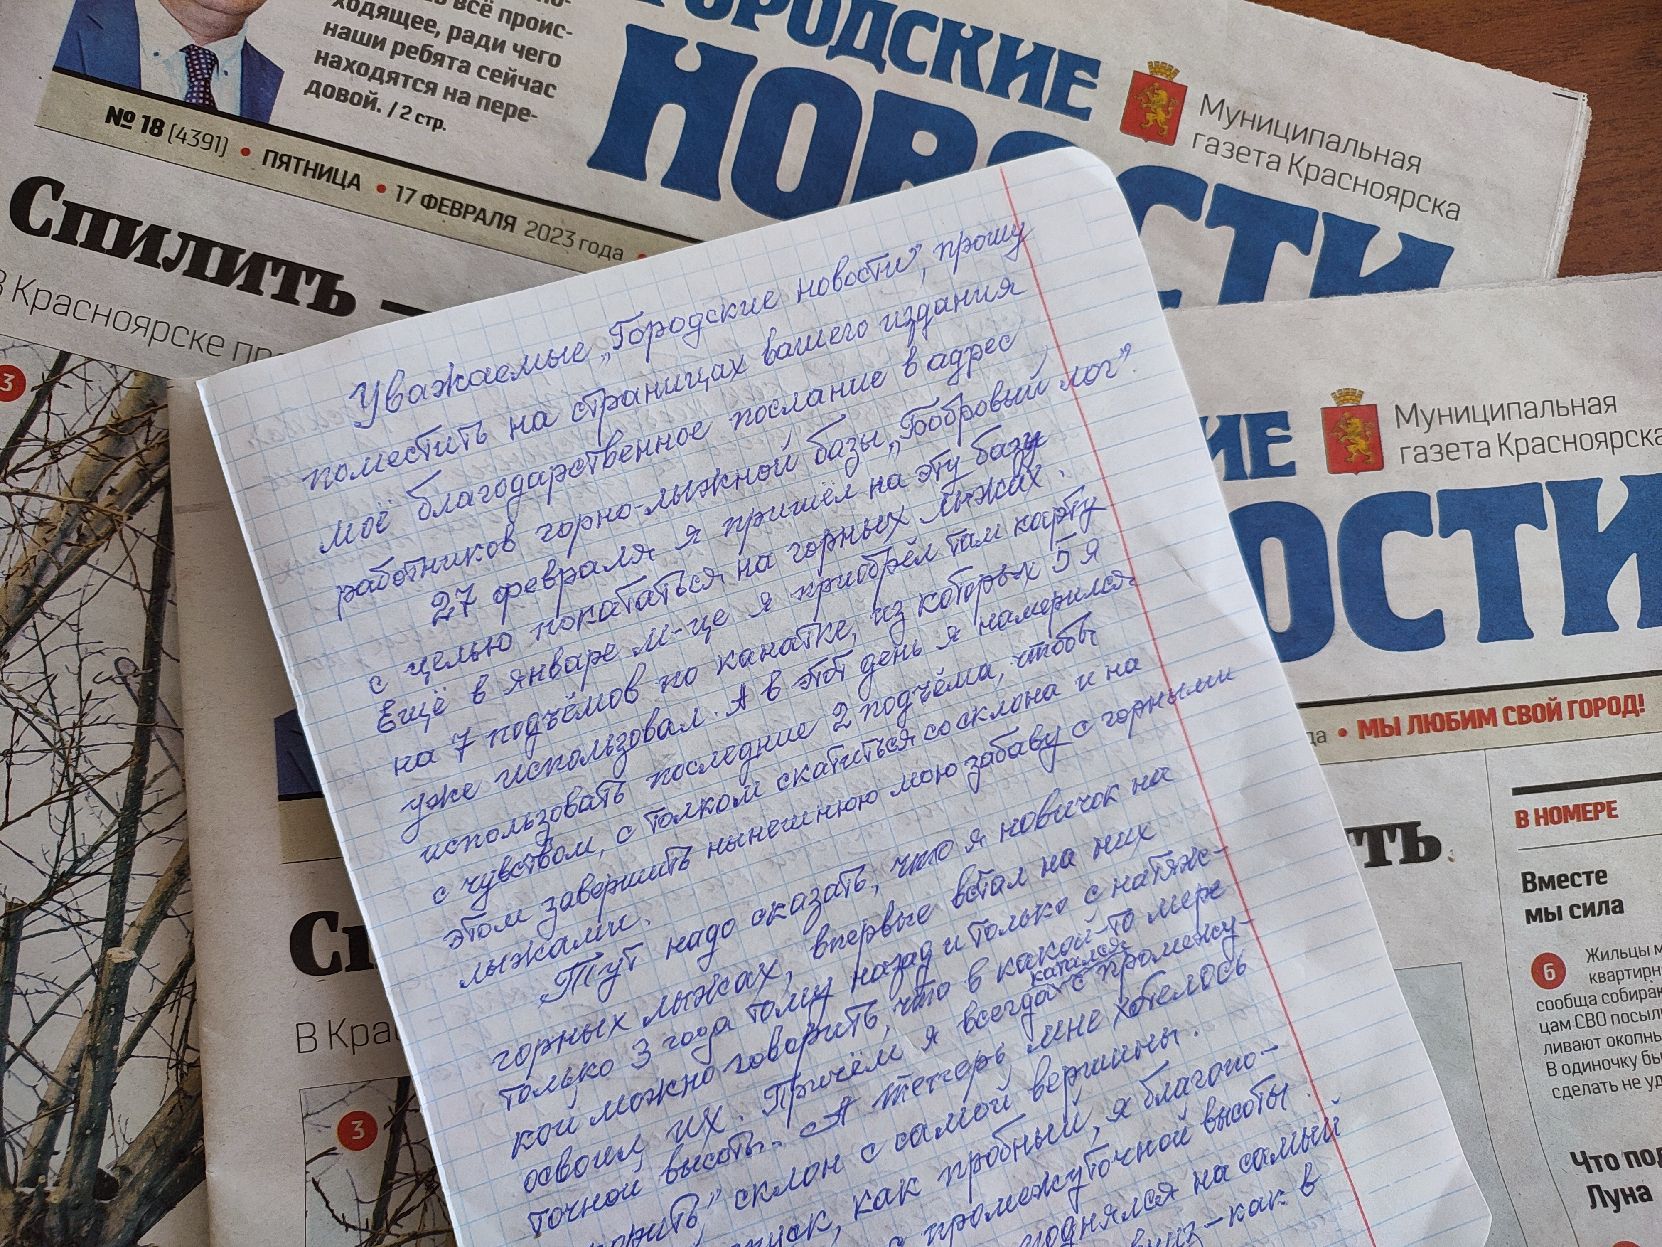 всё проис-
ходящее, ради чего
наши ребята сейчас
находятся на пере-
довой. / 2 стр.
ГОРОДСКИЕ
НОВОСТИ
Муниципальная
газета Красноярска
№ 18 (4391) • ПЯТНИЦА • 17 ФЕВРАЛЯ 2023 года •
Спилить –
в Красноярске
3
Уважаемые „Городские новости”, прошу
поместить на страницах вашего издания
моё благодарственное послание в адрес
работников горно-лыжной базы „Бобровый лог”.
27 февраля я пришёл на эту базу
с целью покататься на горных лыжах.
Ещё в январе м-це я приобрёл там карту
на 7 подъёмов по канатке, из которых 5 я
уже использовал. А в этот день я намерился
использовать последние 2 подъёма, чтобы
с чувством, с толком скатиться со склона и на
этом завершить нынешнюю мою забаву с горными
лыжами.
Тут надо сказать, что я новичок на
горных лыжах, впервые встал на них
только 3 года тому назад и только с натяж-
кой можно говорить, что в какой-то мере
освоил их. Причём я всегда катался с промежу-
точной высоты. А теперь мне хотелось
склон с самой вершины.
как пробный, я благопо-
с промежуточной высоты.
поднялся на самый
как в
ИЕ
ОСТИ
Муниципальная
газета Красноярска
• МЫ ЛЮБИМ СВОЙ ГОРОД!
ть
В НОМЕРЕ
Вместе
мы сила
6
Жильцы
сообща
цам СВО
ливают
В одиночку
сделать не
Что
Луна
Сп
В Кра
3